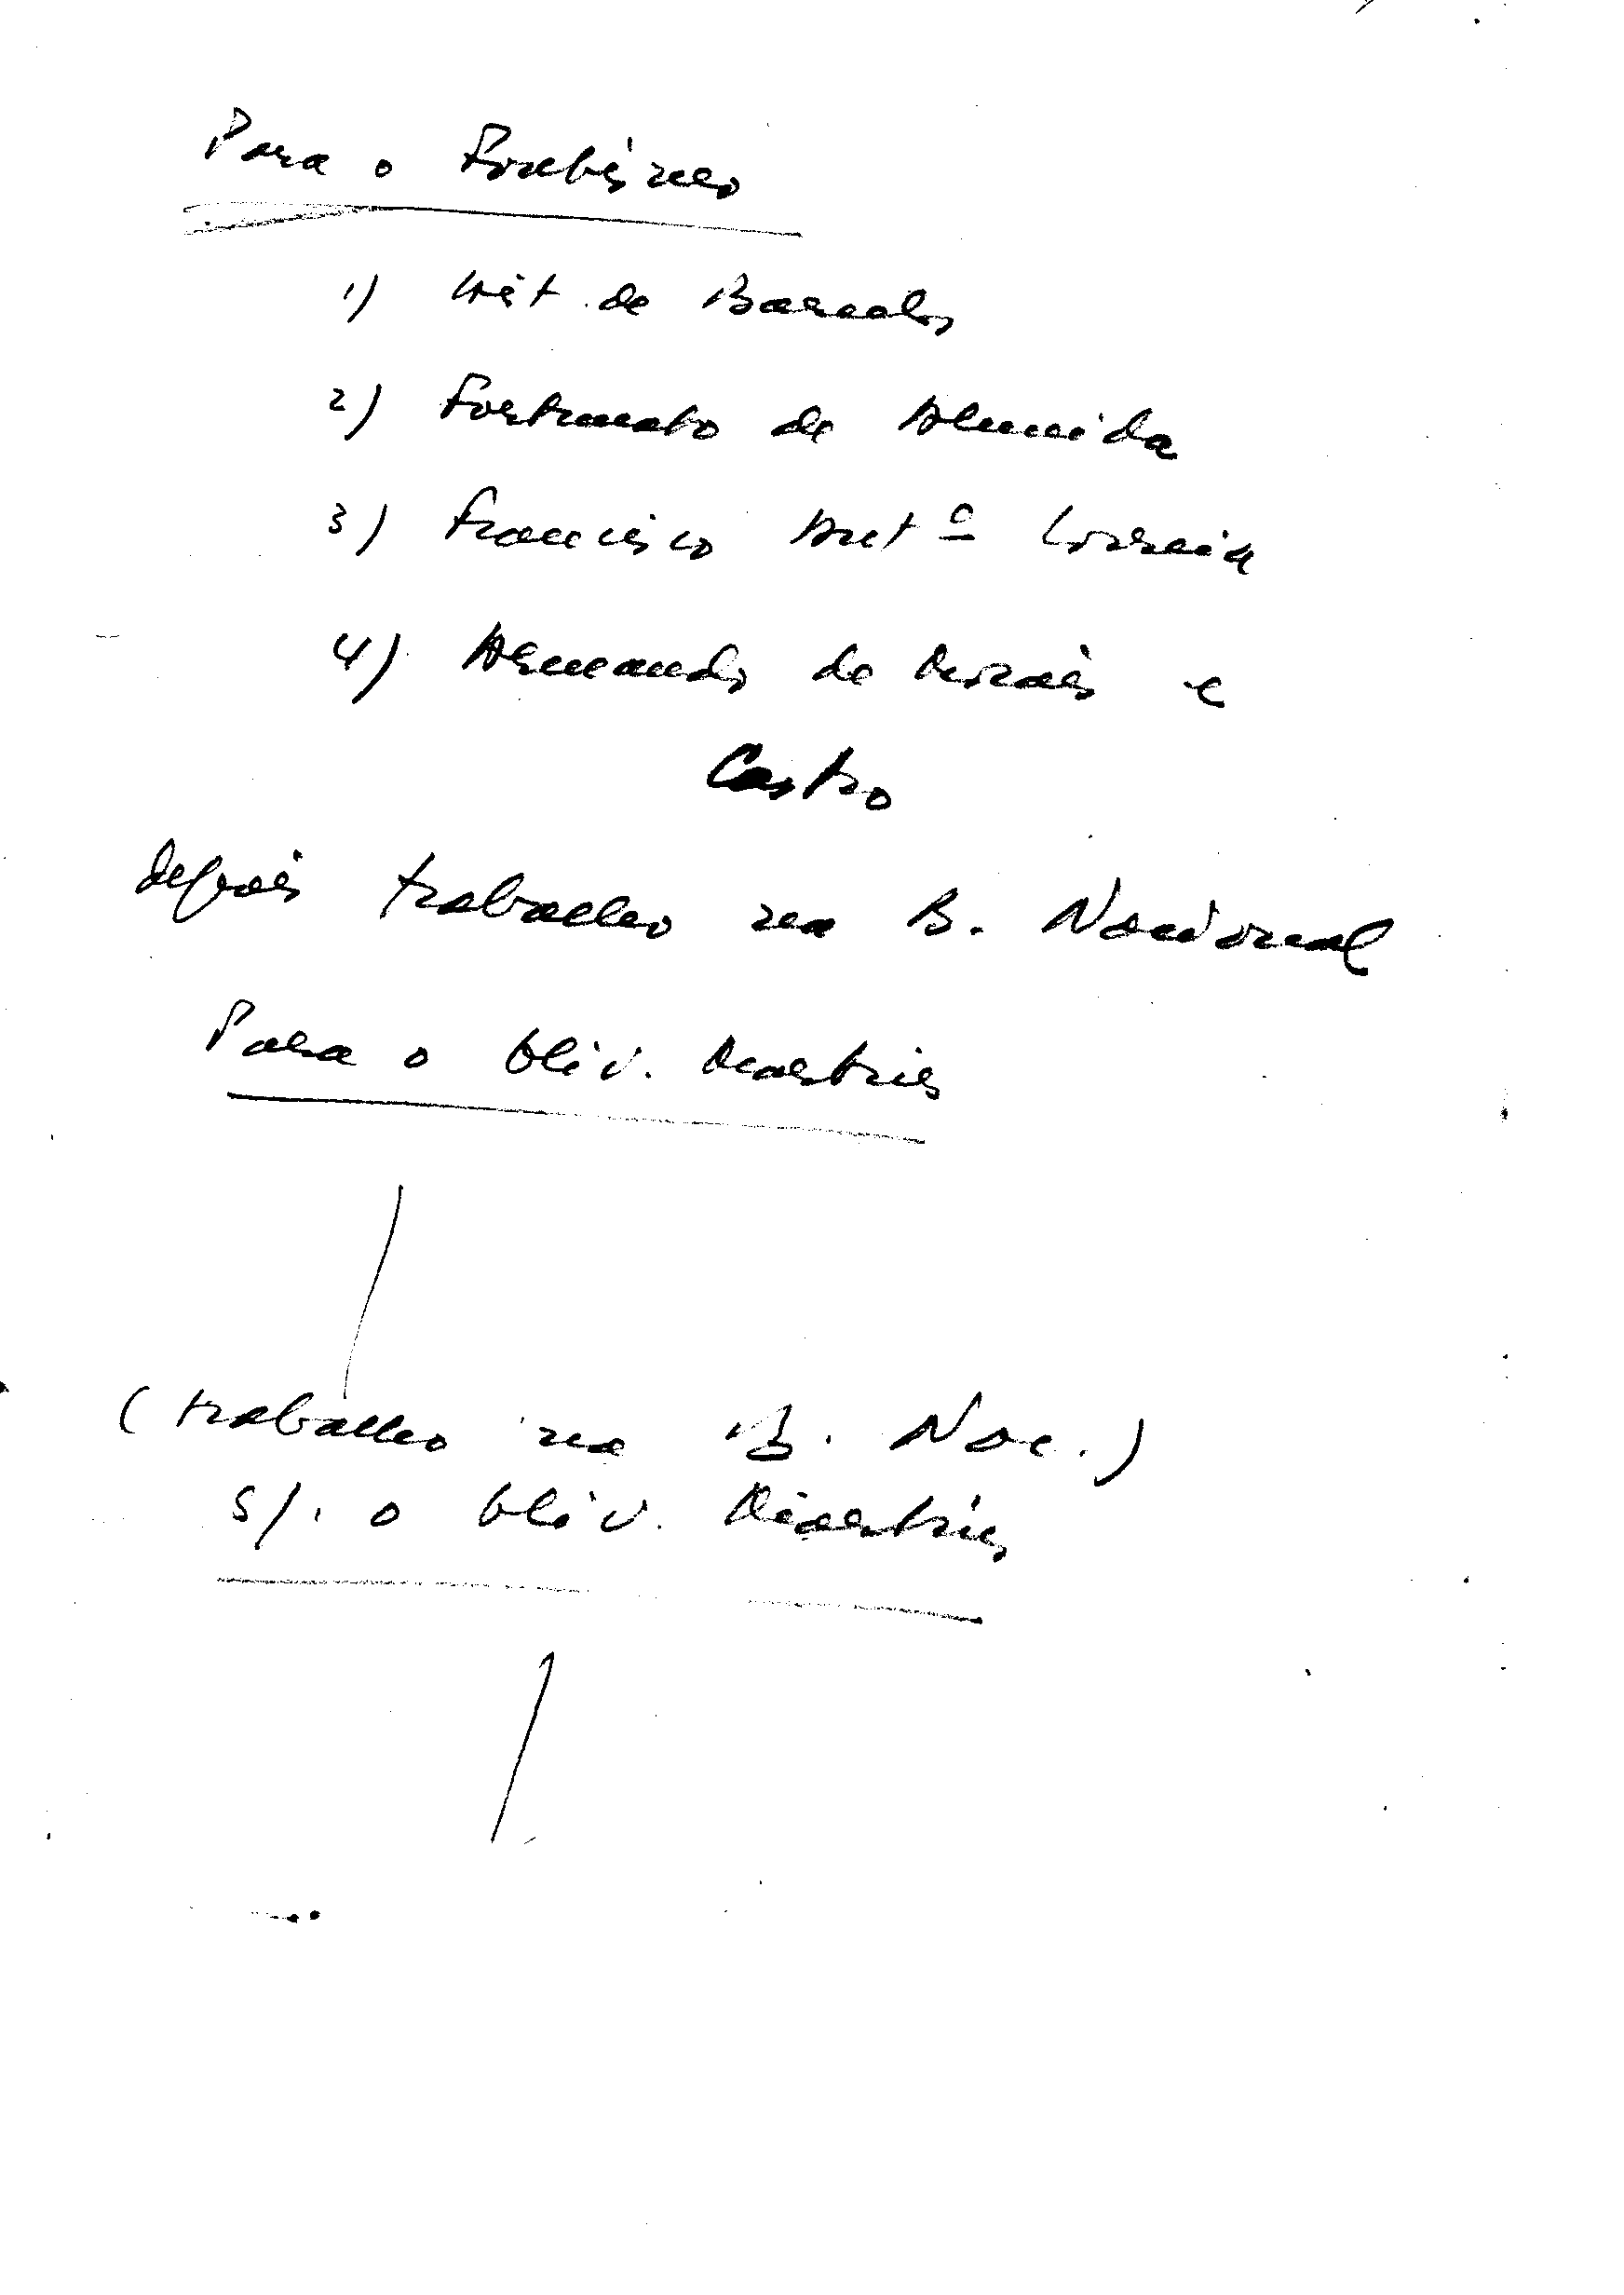 Para o Forbésneo
1) Hist. de Barcelos
2) Fortunato de Almeida
3) Francisco Antº Correia
4) Armando de Morais e
Castro
depois trabalho na B. Nacional
Para o Oliv. Martins
(trabalho na B. Nac.)
s/. o Oliv. Martins